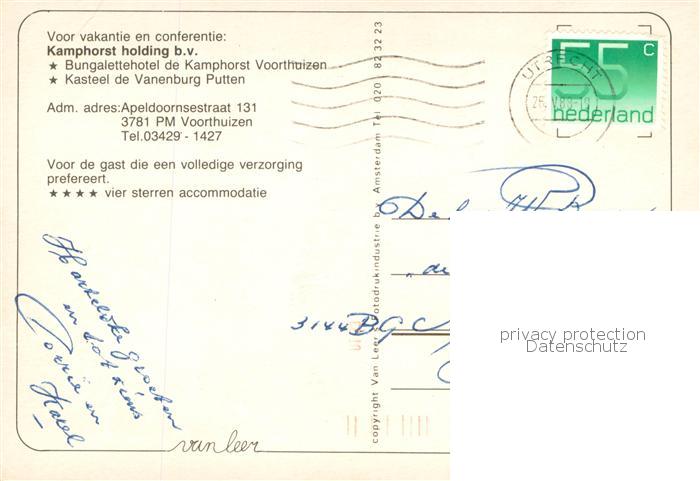 Voor vakantie en conferentie:
Kamphorst holding b.v.
★ Bungalettehotel de Kamphorst Voorthuizen
★ Kasteel de Vanenburg Putten
Adm. adres: Apeldoornsestraat 131
3781 PM Voorthuizen
Tel.03429 - 1427
Voor de gast die een volledige verzorging
prefereert.
★★★★ vier sterren accommodatie
Hartelijke groeten
en tot ziens
en
Karel
van leer
copyright Van Leer Fotodrukindustrie b.v. Amsterdam Tel. 020 - 82 32 23
UTRECHT
55 c
nederland
De
"de
3144 BG
privacy protection
Datenschutz